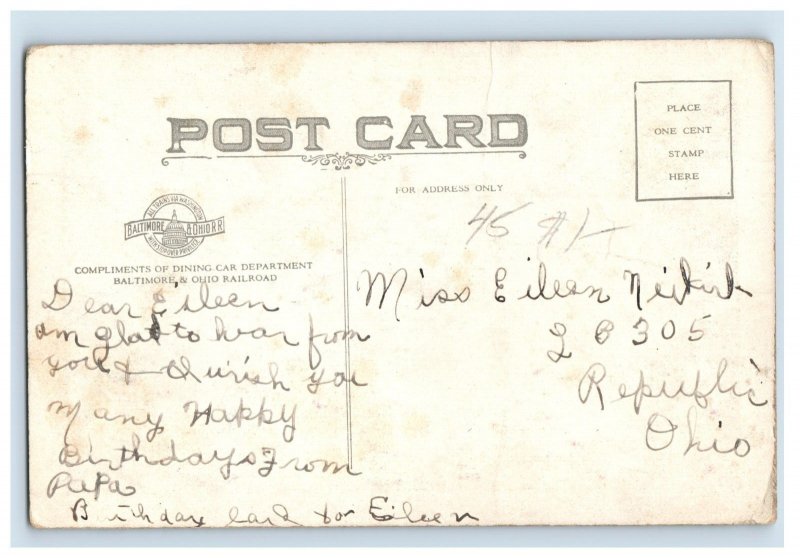 POST CARD
PLACE
ONE CENT
STAMP
HERE
FOR ADDRESS ONLY
ALL TRAINS VIA WASHINGTON
BALTIMORE & OHIO R.R.
WITH STOPOVER PRIVILEGE
COMPLIMENTS OF DINING CAR DEPARTMENT
BALTIMORE & OHIO RAILROAD
45 #1
Dear Eileen
am glad to hear from
you & I wish you
Many Happy
Birthdays From
PaPa
Birthdare Card for Eileen
Miss Eileen Neikirk
B 305
Republic
Ohio